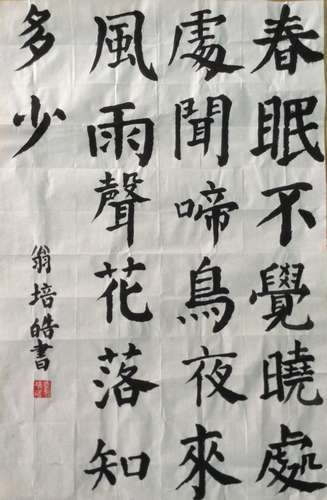 春眠不覺曉處
處聞啼鳥夜來
風雨聲花落知
多少
翁培皓書